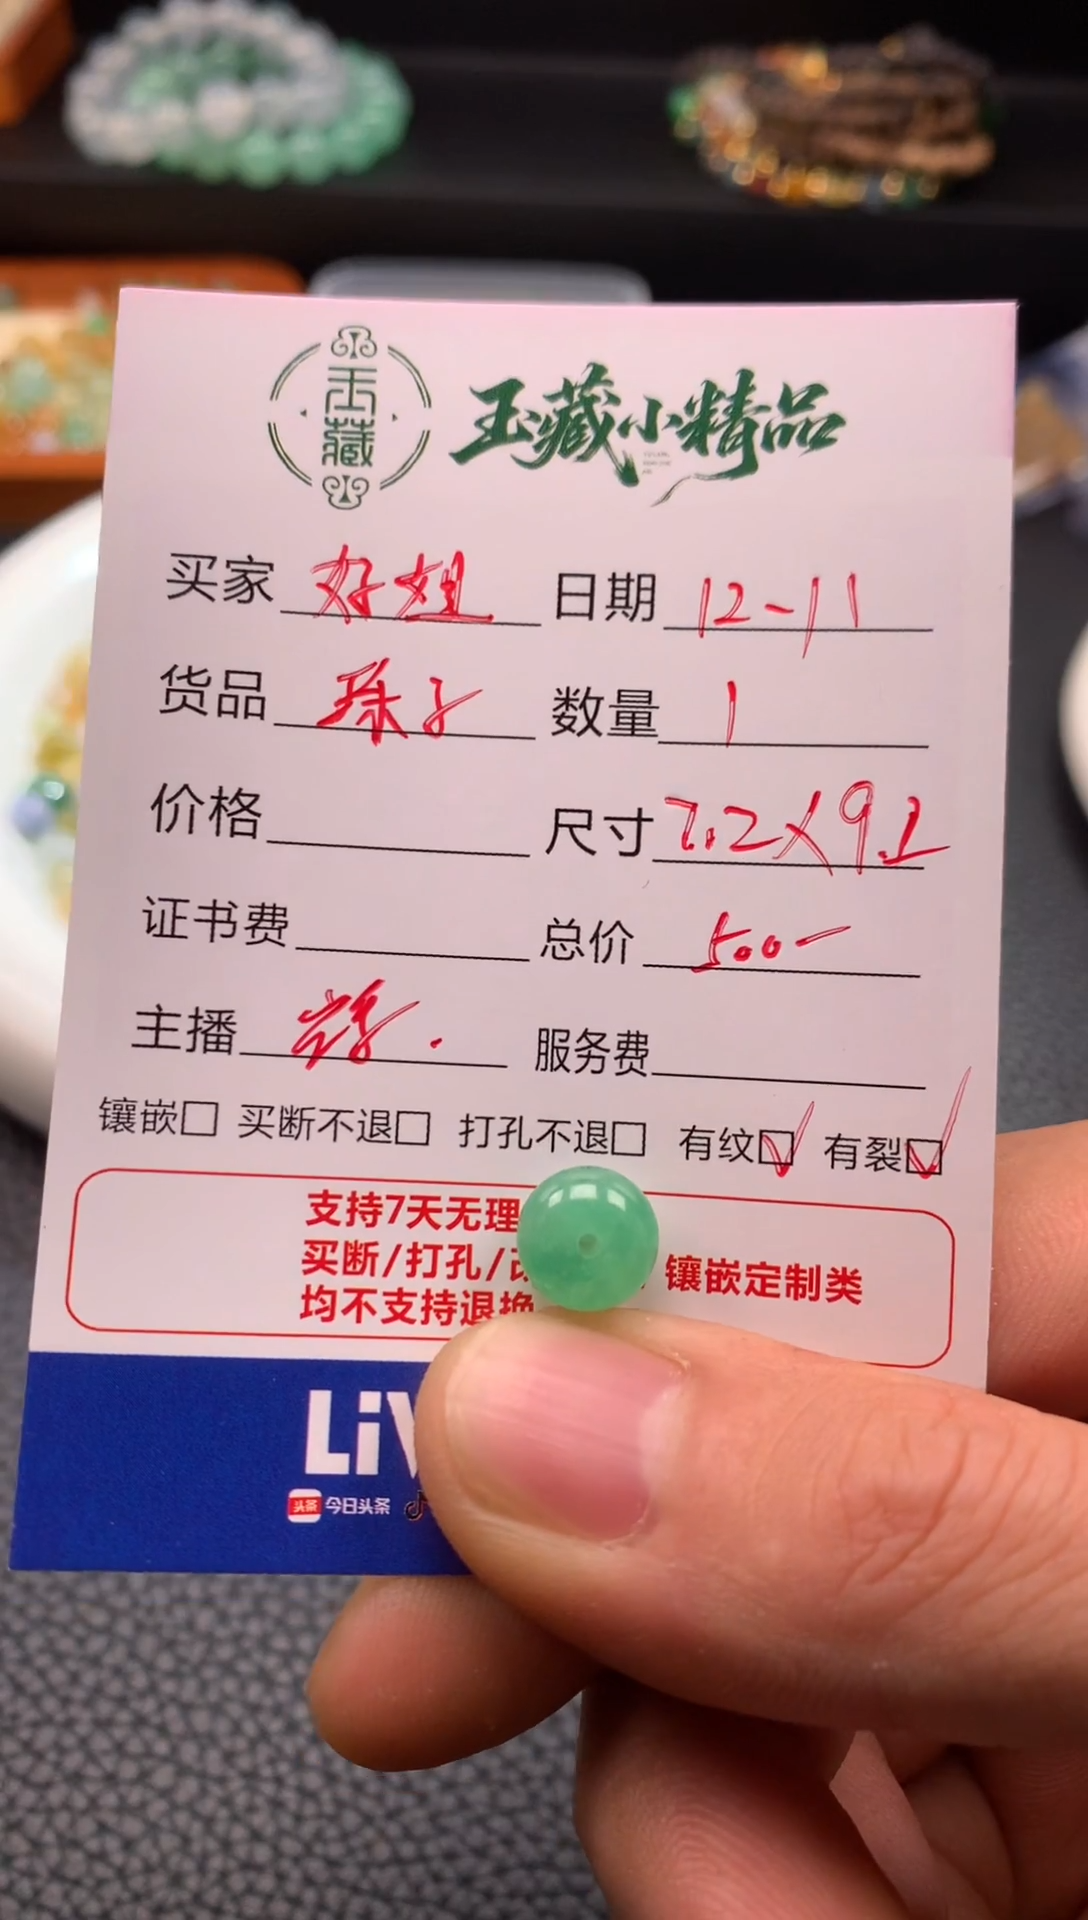 玉藏
玉藏小精品
买家 好姐 日期 12-11
货品 珠子 数量 1
价格 尺寸 7.2×9.1
证书费 总价 500-
主播 服务费
镶嵌□ 买断不退□ 打孔不退□ 有纹☑ 有裂☑
支持7天无理
买断/打孔/ 镶嵌定制类
均不支持退换
LiV
头条 今日头条